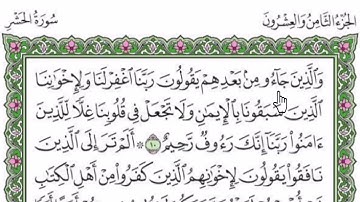 الجزء الثامن والعشرون سورة الحشر
وَالَّذِينَ جَآءُو مِنۢ بَعْدِهِمْ يَقُولُونَ رَبَّنَا اغْفِرْ لَنَا وَلِإِخْوَٰنِنَا
الَّذِينَ سَبَقُونَا بِالْإِيمَٰنِ وَلَا تَجْعَلْ فِى قُلُوبِنَا غِلًّا لِّلَّذِينَ
ءَامَنُوا۟ رَبَّنَآ إِنَّكَ رَءُوفٌ رَّحِيمٌ ١٠ ۞ أَلَمْ تَرَ إِلَى الَّذِينَ
نَافَقُوا۟ يَقُولُونَ لِإِخْوَٰنِهِمُ الَّذِينَ كَفَرُوا۟ مِنْ أَهْلِ الْكِتَٰبِ